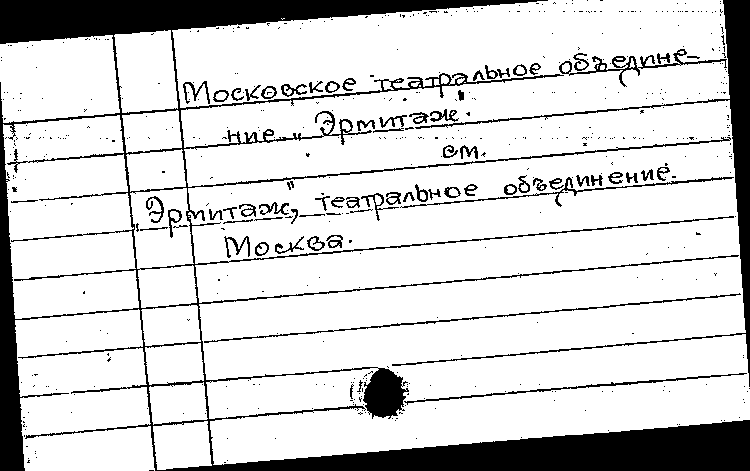 Московское театральное объедине-
ние „Эрмитаж".
см.
„Эрмитаж", театральное объединение.
Москва.